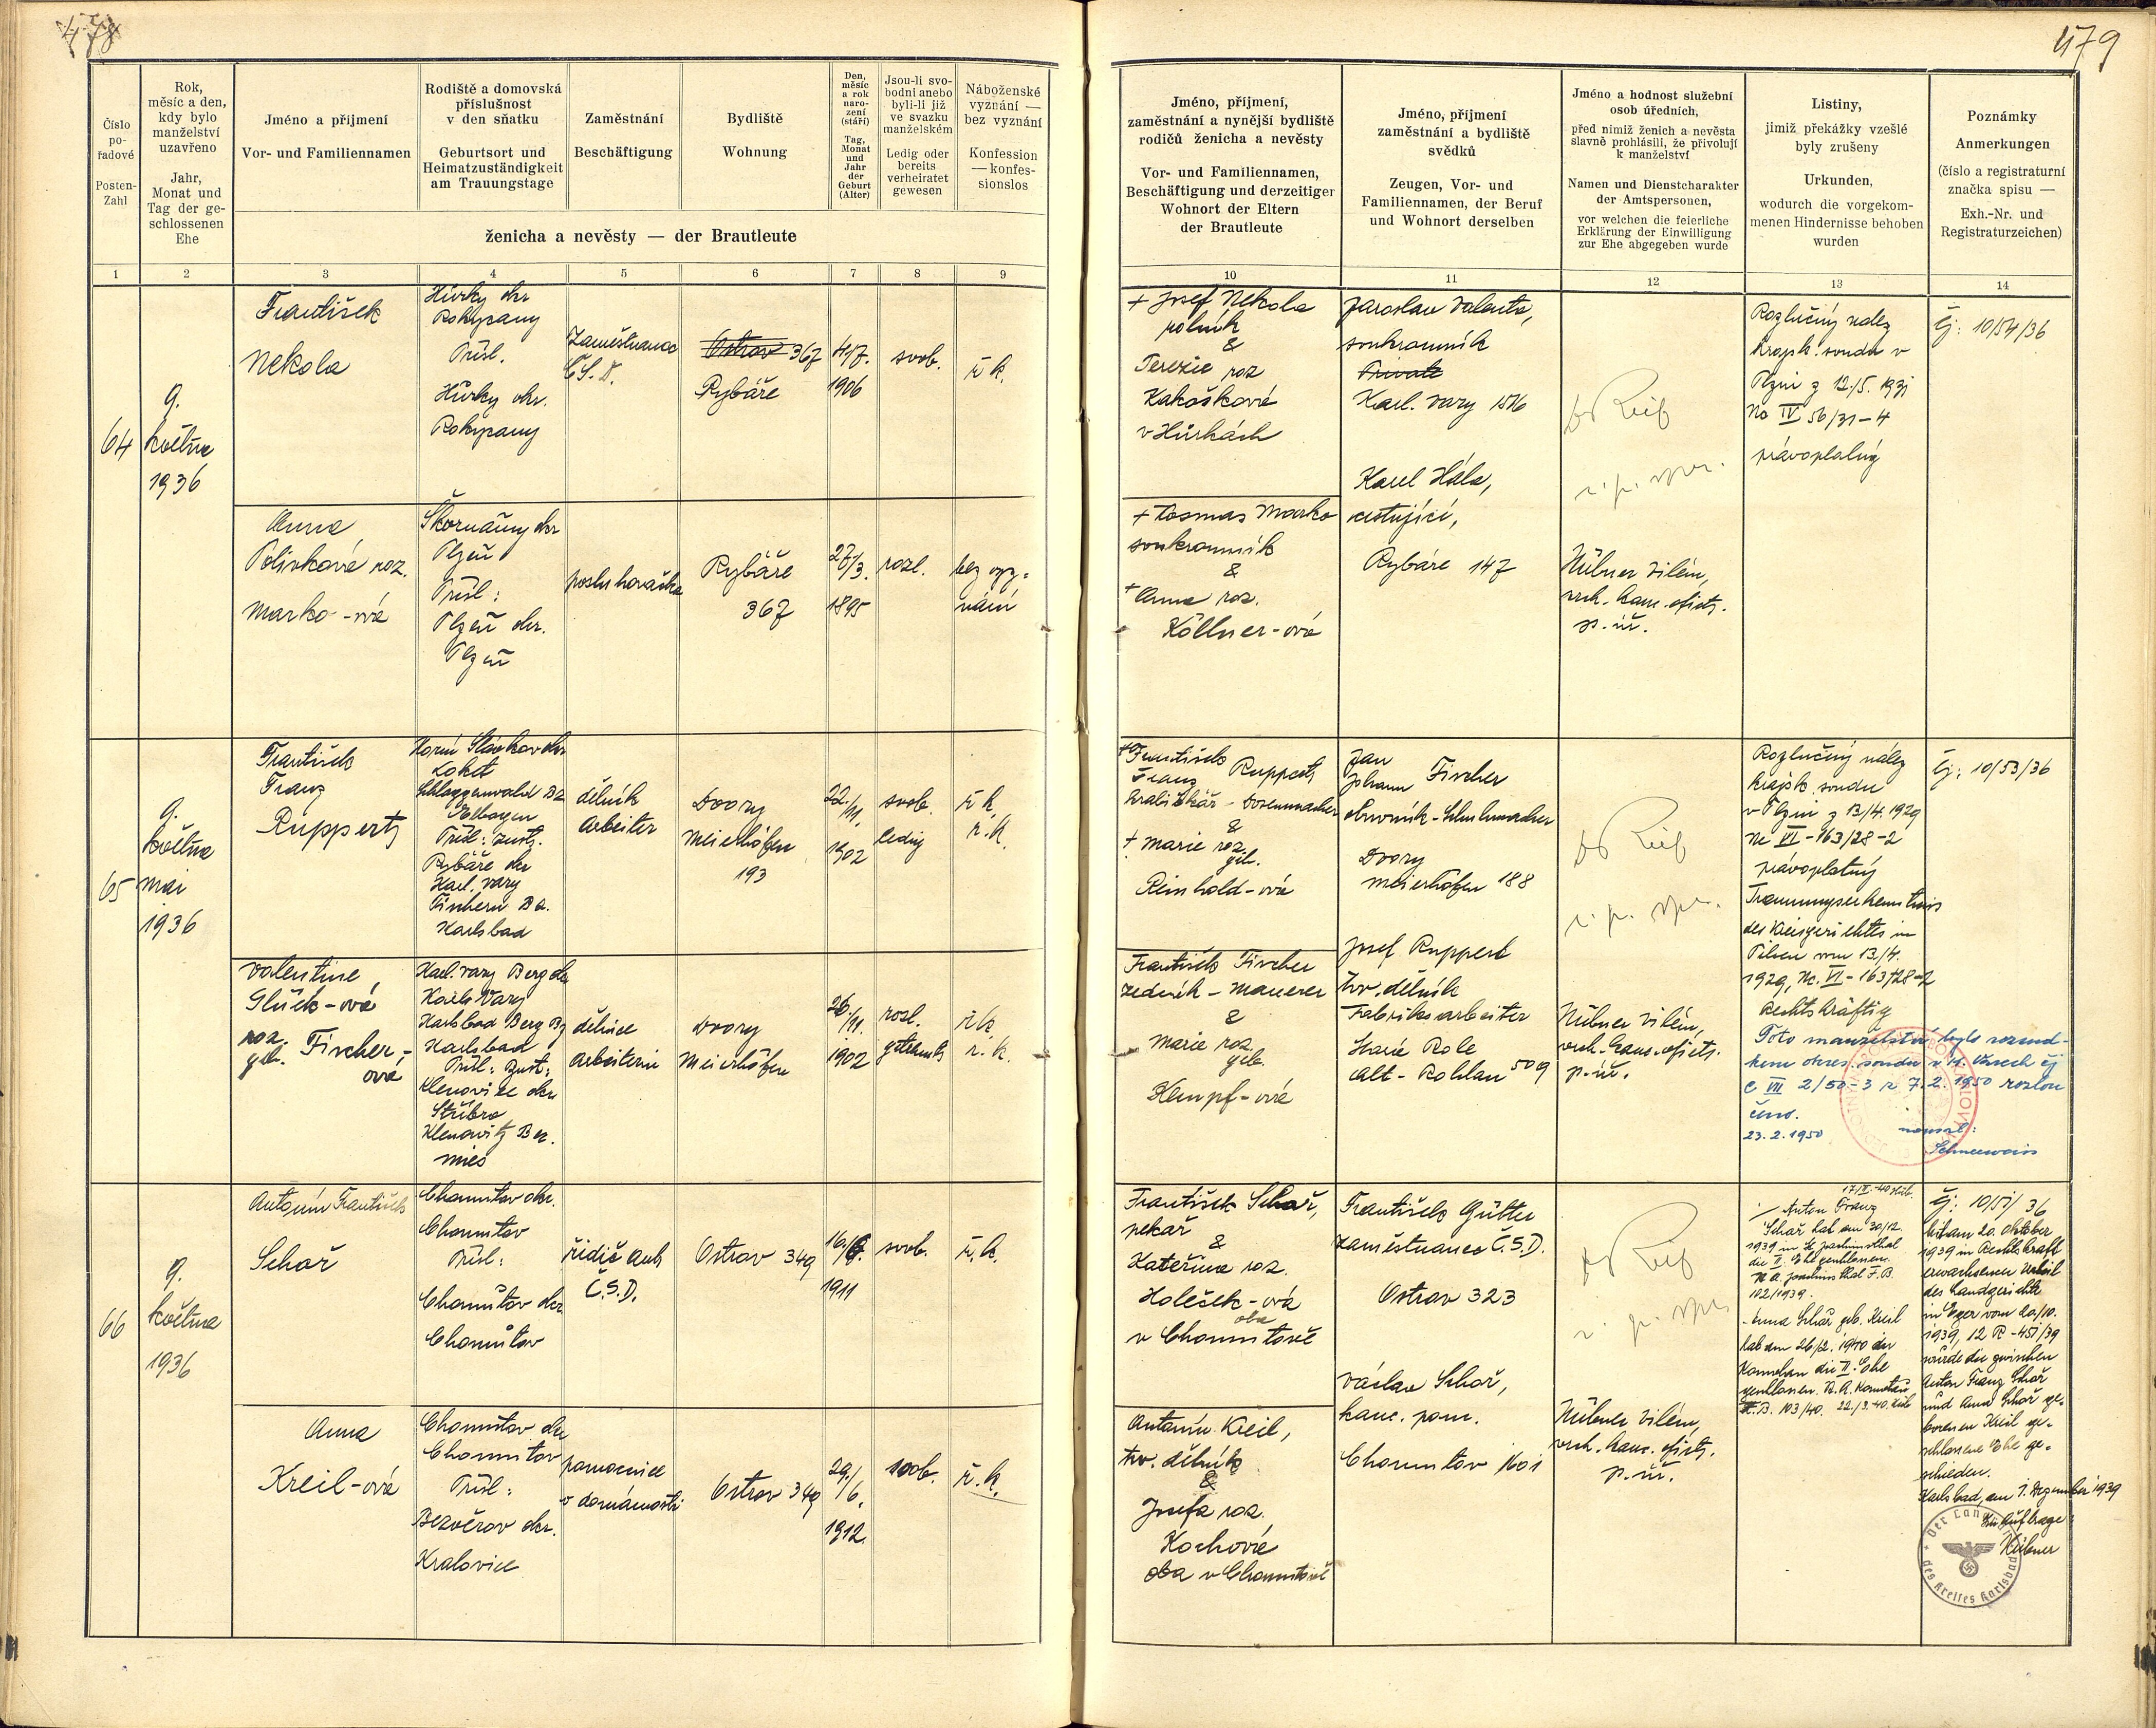 478
479
Číslo
po-
řadové
Posten-
Zahl
Rok,
měsíc a den,
kdy bylo
manželství
uzavřeno
Jahr,
Monat und
Tag der ge-
schlossenen
Ehe
Jméno a příjmení
Vor- und Familiennamen
Rodiště a domovská
příslušnost
v den sňatku
Geburtsort und
Heimatzuständigkeit
am Trauungstage
Zaměstnání
Beschäftigung
Bydliště
Wohnung
Den,
měsíc
a rok
naro-
zení
(stáří)
Tag,
Monat
und
Jahr
der
Geburt
(Alter)
Jsou-li svo-
bodni anebo
byli-li již
ve svazku
manželském
Ledig oder
bereits
verheiratet
gewesen
Náboženské
vyznání —
bez vyznání
Konfession
— konfes-
sionslos
ženicha a nevěsty — der Brautleute
Jméno, příjmení,
zaměstnání a nynější bydliště
rodičů ženicha a nevěsty
Vor- und Familiennamen,
Beschäftigung und derzeitiger
Wohnort der Eltern
der Brautleute
Jméno, příjmení
zaměstnání a bydliště
svědků
Zeugen, Vor- und
Familiennamen, der Beruf
und Wohnort derselben
Jméno a hodnost služební
osob úředních,
před nimiž ženich a nevěsta
slavně prohlásili, že přivolují
k manželství
Namen und Dienstcharakter
der Amtspersonen,
vor welchen die feierliche
Erklärung der Einwilligung
zur Ehe abgegeben wurde
Listiny,
jimiž překážky vzešlé
byly zrušeny
Urkunden,
wodurch die vorgekom-
menen Hindernisse behoben
wurden
Poznámky
Anmerkungen
(číslo a registraturní
značka spisu —
Exh.-Nr. und
Registraturzeichen)
1 2 3 4 5 6 7 8 9
10 11 12 13 14
64
9.
května
1936
František
Nekola
Hůrky okr
Rokycany
Přísl.
Hůrky okr.
Rokycany
Zaměstnanec
Č.S.D.
Ostrov 367
Rybáře
4/7.
1906
svob.
ř. k.
+ Josef Nekola
rolník
&
Terezie roz
Kakošková
v Hůrkách
Jaroslav Valenta,
soukromník
Private
Karl. Vary 1516
Karel Hála,
cestující,
Rybáře 147
r. p. vyr.
Hübner Vilém,
vrch. kanc. ofici.
p. úř.
Rozlučný nález
krajsk. soudu v
Plzni z 12./5. 1931
No IV 56/31-4
právoplatný
Čj: 10/54/36
Anna
Polívková roz.
Marko-ová
Škorňany okr
Plzeň
Přísl:
Plzeň okr.
Plzeň
posluhovačka
Rybáře
367
27/3.
1895
rozl.
bez vyz-
nání
+ Kosmas Marko
soukromník
&
+ Anna roz.
Köllner-ová
65
9.
května
Mai
1936
František
Franz
Ruppert
Horní Slavkov okr
Loket
Schlaggenwald Bz
Elbogen
Přísl: zust.
Rybáře okr
Karl. Vary
Fischern Bz.
Karlsbad
dělník
Arbeiter
Dvory
Meierhöfen
193
22./11.
1902
svob.
ledig
ř. k.
r. k.
+ František
Franz Ruppert
krabičkář - Dosenmacher
&
+ Marie roz.
geb.
Reinhold-ová
Jan
Johann Fischer
obuvník - Schuhmacher
Dvory
Meierhöfen 188
Josef Ruppert
tov. dělník
Fabriksarbeiter
Staré Role
Alt-Rohlau 509
Hübner Vilém,
vrch. kanc. ofici.
p. úř.
Rozlučný nález
krajsk. soudu
v Plzni z 13./4. 1929
Nc VI-163/28-2
právoplatný
Trennungserkenntnis
des Kreisgerichtes in
Pilsen vom 13./4.
1929, Nc. VI-163/28-2
rechtskräftig
Toto manželství bylo rozsud-
kem okres. soudu v K. Varech čj
C VII 2/50-3 z 7.2.1950 rozlou
čeno.
23.2.1950
Schneeweiss
Čj: 10/53/36
Valentine
Glück-ová
roz.
geb. Fischer-
ová
Karl. Vary Berg okr
Karl. Vary
Karlsbad Berg Bz
Karlsbad
Přísl: zust:
Klenovice okr
Stříbro
Klenowitz Bez.
Mies
dělnice
Arbeiterin
Dvory
Meierhöfen
26./11.
1902
rozl.
getrennt
ř. k.
r. k.
František Fischer
zedník - Maurer
&
Marie roz.
geb.
Hempf-ová
66
9.
května
1936
Antonín František
Schař
Chomutov okr.
Chomutov
Přísl:
Chomutov okr.
Chomutov
řidič auta
Č.S.D.
Ostrov 349
16./6.
1911
svob.
ř. k.
František Schař,
pekař
&
Kateřina roz.
Holešek-ová
oba
v Chomutově
František Gütter
zaměstnanec Č.S.D.
Ostrov 323
Václav Schař,
kanc. pom.
Chomutov 1601
Hübner Vilém,
vrch. kanc. ofici.
p. úř.
Anton Franz
Schař hat am 30/12.
1939 in St. Joachimsthal
die II. Ehe geschlossen.
St. A. Joachimsthal F.B.
102/1939.
Anna Schař geb. Kreil
hat am 26/2. 1940 in
Komotau die II. Ehe
geschlossen. St. A. Komotau
F.B. 103/40. 22./3.40.
Čj: 10/51/36
Mit am 20. Oktober
1939 in Rechtskraft
erwachsenem Urteil
des Landgerichtes
in Eger vom 20./10.
1939, 12 R-451/39
wurde die zwischen
Anton Franz Schař
und Anna Schař ge-
borenen Kreil ge-
schlossene Ehe ge-
schieden.
Karlsbad, am 1. Dezember 1939
Im Auftrage:
Hübner
Anna
Kreil-ová
Chomutov okr
Chomutov
Přísl:
Bezvěrov okr.
Kralovice
pomocnice
v domácnosti
Ostrov 349
29./6.
1912.
svob.
ř. k.
Antonín Kreil,
tov. dělník
&
Josefa roz.
Kochová
oba v Chomutově